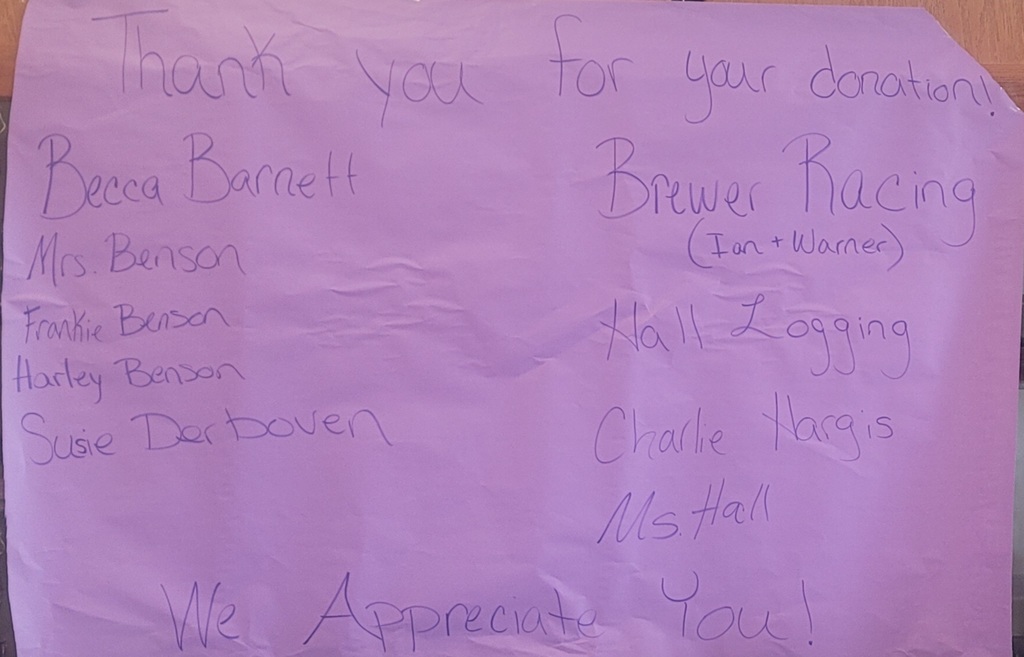 Thank you for your donation!
Becca Barnett
Mrs. Benson
Frankie Benson
Harley Benson
Susie Derboven
Brewer Racing
(Ian + Warner)
Hall Logging
Charlie Hargis
Ms. Hall
We Appreciate You!